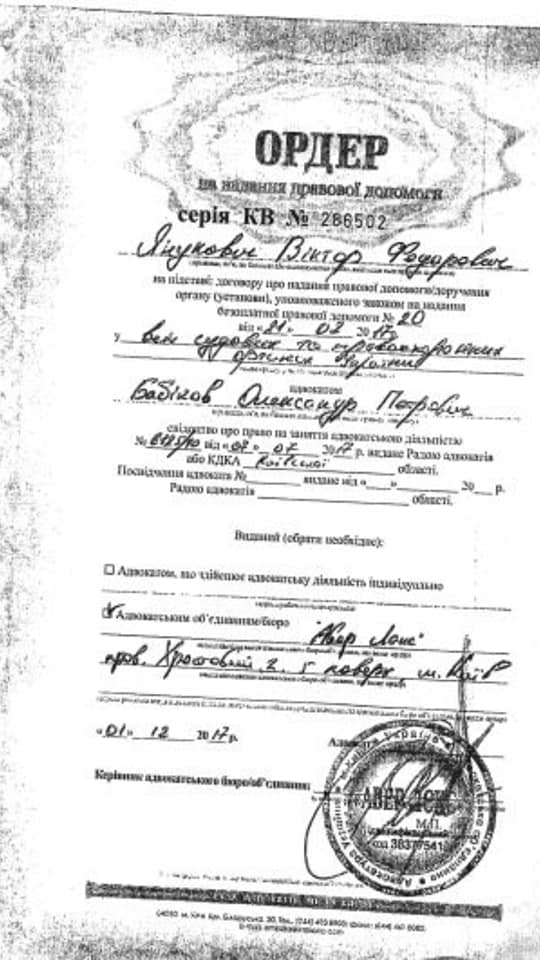 ОРДЕР
на надання правової допомоги
серія КВ № 286502
Янукович Віктор Федорович
на підставі: договору про надання правової допомоги/доручення
органу (установи), уповноваженого законом на надання
безоплатної правової допомоги № 20
від « 21 » 02 2017р.
у всіх судових та правоохоронних
органах України
адвокатом
Бабіков Олександр Петрович
свідоцтво про право на заняття адвокатською діяльністю
№ від « 07 » 07 2017 р. видане Радою адвокатів
або КДКА Київської області.
Посвідчення адвоката № видане від « » 20 р.
Радою адвокатів області.
Виданий (обрати необхідне):
Адвокатом, що здійснює адвокатську діяльність індивідуально
Адвокатським об'єднанням/бюро
"Авер Лекс"
пров. Хрестовий 2, поверх м. Київ
« 01 » 12 2017р.
Адвокат
Керівник адвокатського бюро/об'єднання:
М.П.
код 38377541